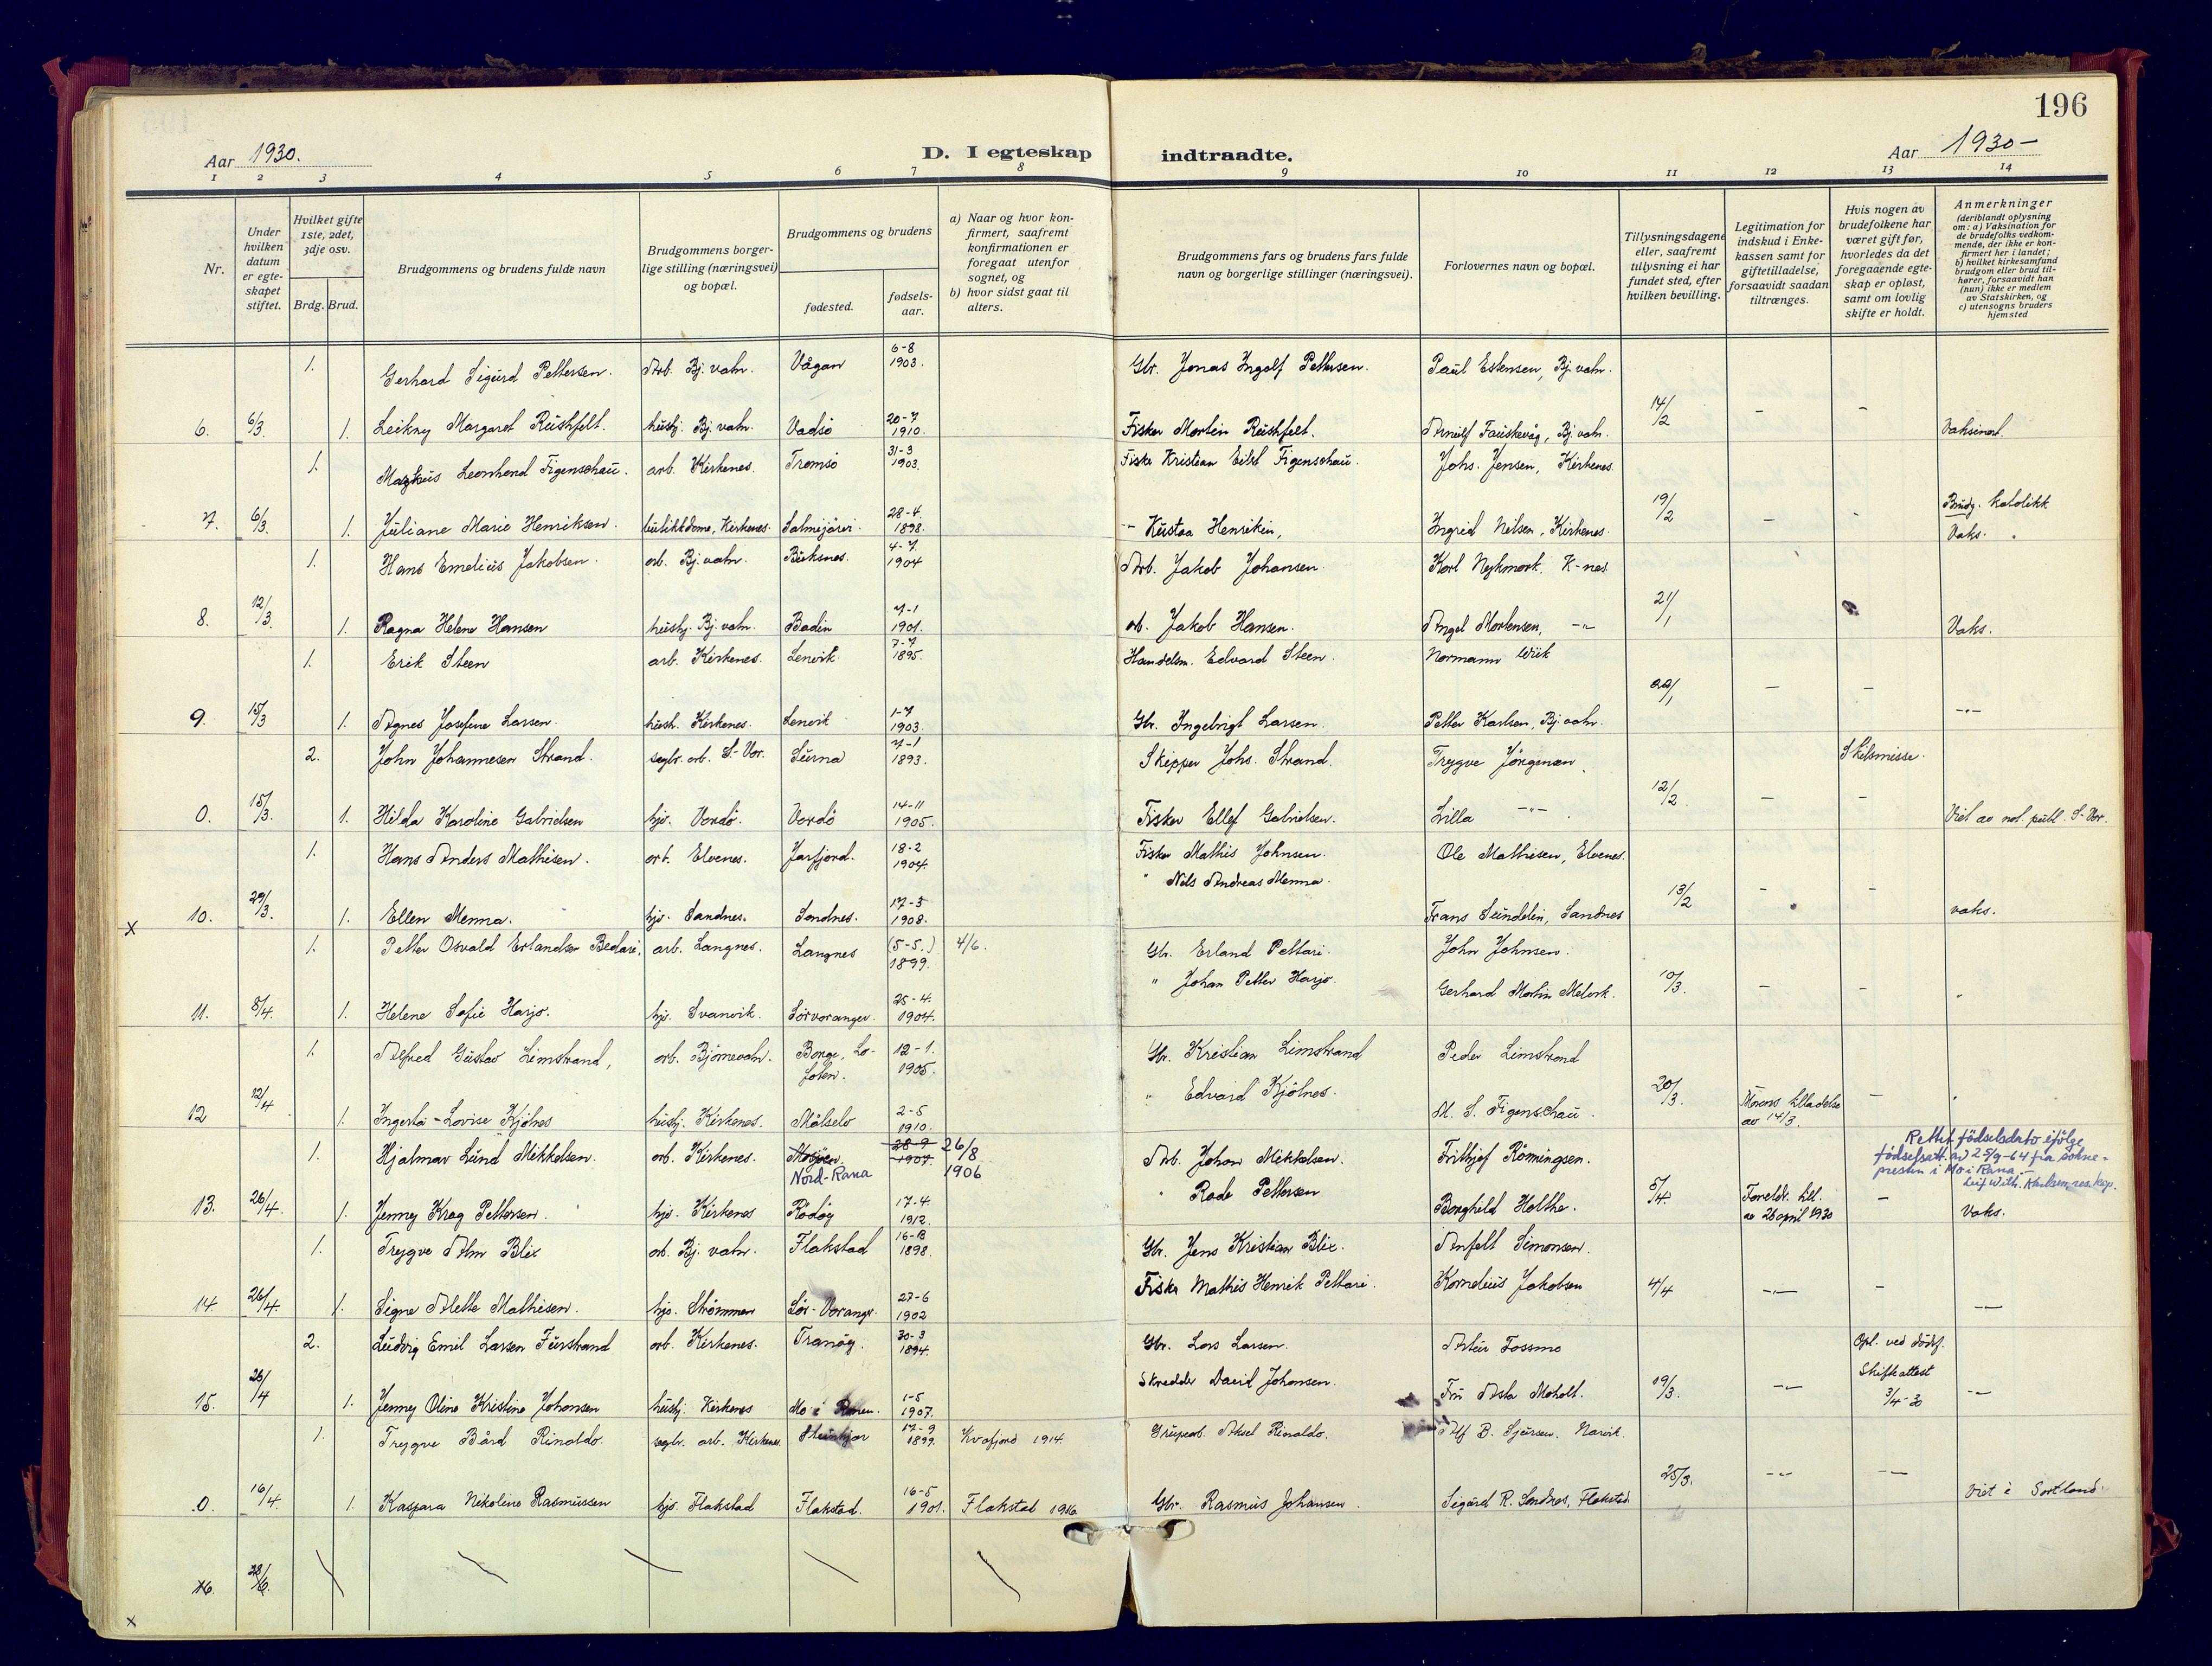 196
Aar 1930.
D. I egteskap indtraadte.
Aar 1930-
1 2 3 4 5 6 7 8 9 10 11 12 13 14
Nr.
Under hvilken datum er egteskapet stiftet.
Hvilket gifte 1ste, 2det, 3dje osv.
Brdg. Brud.
Brudgommens og brudens fulde navn
Brudgommens borgerlige stilling (næringsvei) og bopæl.
Brudgommens og brudens
fødested.
fødselsaar.
a) Naar og hvor konfirmert, saafremt konfirmationen er foregaat utenfor sognet, og
b) hvor sidst gaat til alters.
Brudgommens fars og brudens fars fulde navn og borgerlige stillinger (næringsvei).
Forlovernes navn og bopæl.
Tillysningsdagene eller, saafremt tillysning ei har fundet sted, efter hvilken bevilling.
Legitimation for indskud i Enkekassen samt for giftetilladelse, forsaavidt saadan tiltrænges.
Hvis nogen av brudefolkene har været gift før, hvorledes da det foregaaende egteskap er opløst, samt om lovlig skifte er holdt.
Anmerkninger
(deriblandt oplysning om: a) Vaksination for de brudefolks vedkommende, der ikke er konfirmert her i landet; b) hvilket kirkesamfund brudgom eller brud tilhører, forsaavidt han (hun) ikke er medlem av Statskirken, og c) utensogns bruders hjemsted
1. Gerhard Sigurd Pettersen. Arb. Bj. vatn. Vågan 6-8 1903. Gbr. Jonas Ingolf Pettersen. Paul Estensen, Bj. vatn.
6. 6/3. 1. Leikny Margaret Rushfelt. husbj. Bj. vatn. Vadsö 20-7 1910. Fisker Morten Rushfelt. Arnulf Fauskevåg, Bj. vatn. 14/2 - - Vaksinert.
1. Markus Leonhard Figenschau. arb. Kirkenes. Tromsö 31-3 1903. Fisker Kristian Figenschau. Johs. Jensen, Kirkenes.
7. 6/3. 1. Juliane Marie Henriksen. butikkdame, Kirkenes. Salmijärvi 28-4. 1898. -"- Kustaa Henrikin, Ingrid Nilsen, Kirkenes. 19/2 - - Brudg. katolikk Vaks.
1. Hans Emelius Jakobsen. arb. Bj. vatn. Buksnes. 4-7. 1904 Arb. Jakob Johansen. Karl Nykmark. K-nes
8. 12/3. 1. Ragna Helene Hansen husbj. Bj. vatn. Bodin 7-1 1901. arb. Jakob Hansen. Angel Mortensen, -"- 21/1 Vaks.
1. Erik Steen arb. Kirkenes. Lenvik 7-7 1895. Handelsm. Edvard Steen. Normann Wiik
9. 15/3 1. Agnes Josefine Larsen. husb. Kirkenes. Lenvik 1-7 1903. Gbr. Ingebrigt Larsen. Petter Karlsen, Bj. vatn. 22/1 - - -"-
2. John Johannesen Strand. sagbr. arb. S-Var. Surna 7-1 1893. Skipper Johs. Strand. Trygve Jörgensen. Skilsmisse.
0. 15/3. 1. Hilda Karoline Gabrielsen hjv. Vardö. Vardö 14-11 1905. Fisker Ellef Gabrielsen. Lilla -"- 12/2. - - Viet av not. publ. S-Var.
1. Hans Anders Mathisen. arb. Elvenes. Jarfjord. 18-2 1904. Fisker Mathis Johnsen. Ole Mathisen, Elvenes.
x 10. 29/3. 1. Ellen Menna. hjv. Sandnes. Sandnes. 17-3 1908. " Nils Andreas Menna. Frans Sundelin, Sandnes 13/2 - - vaks.
1. Petter Osvald Erlandsen Bedari. arb. Langnes. Langnes (5-5.) 1899. 4/6. Gbr. Erland Pettari. John Johnsen.
11. 8/4. 1. Helene Sofie Harjo. hjv. Svanvik. Sörvaranger. 25-4. 1904. " Johan Petter Harjo. Gerhard Martin 10/3. - - "
1. Alfred Gustav Limstrand, arb. Björnevatn. Borge, Lofoten. 12-1. 1905. Gbr. Kristian Limstrand Peder Limstrand
12 12/4 1. Ingerta-Lovise Kjölnes husbj. Kirkenes. Målselv 2-5 1910. " Edvard Kjölnes. M. S. Figenschau. 20/3. Morens tilladelse av 14/3. - "
1. Hjalmar Lund Mikkelsen. arb. Kirkenes. Nord-Rana 28-9 1907. 26/8 1906 Arb. Johan Mikkelsen. Frithjof Römingsen. Rettet födselsdato ifölge födselsatt. av 25/9-64 fra sokne- presten i Mo i Rana. - Leif Wilh. Karlsen, res. kap.
13. 26/4. 1. Jenny Krag Pettersen. hjv. Kirkenes Rödöy 17-4. 1912. " Rade Pettersen Borghild Holthe. 5/4 Foreldr. till. av 26 april 1930 - Vaks.
1. Trygve Alm Blix arb. Bj. vatn. Flakstad 1898. Gbr. Jens Kristian Blix. Anfelt Simonsen.
14 26/4. 1. Signe Alette Mathisen. hjv. Strömmen Sör-Varangr. 27-6 1902 Fisker Mathis Henrik Pettari. Kornelius Jakobsen 4/4 -"- - -"-
2. Ludvig Emil Larsen Furstrand arb. Kirkenes. Tranöy. 30-3 1894. Gbr. Lars Larsen. Artur Fossmo Opl. ved dödsf. Skifteattest 3/4-30
15. 26/4 1. Jenny Oline Kristine Johansen husbj. Kirkenes Mo i Ranen. 1-5 1907. Skredder David Johansen. Fru Asta Moholt. 19/3. -"- -"-
1. Trygve Bård Rinaldo. sagbr. arb. Kirkenes. Steinkjær 17-9 1899. Kvæfjord 1914. Grubearb. Aksel Rinaldo. Alf B. Sjursen. Narvik.
0. 16/4. 1. Kaspara Nikoline Rasmussen hjv. Flakstad Flakstad. 16-5 1901. Flakstad 1916 Gbr. Rasmus Johansen. Sigurd R. Sandnes, Flakstad 25/3. -"- -"- Viet i Sortland.
16. 28/6.
x